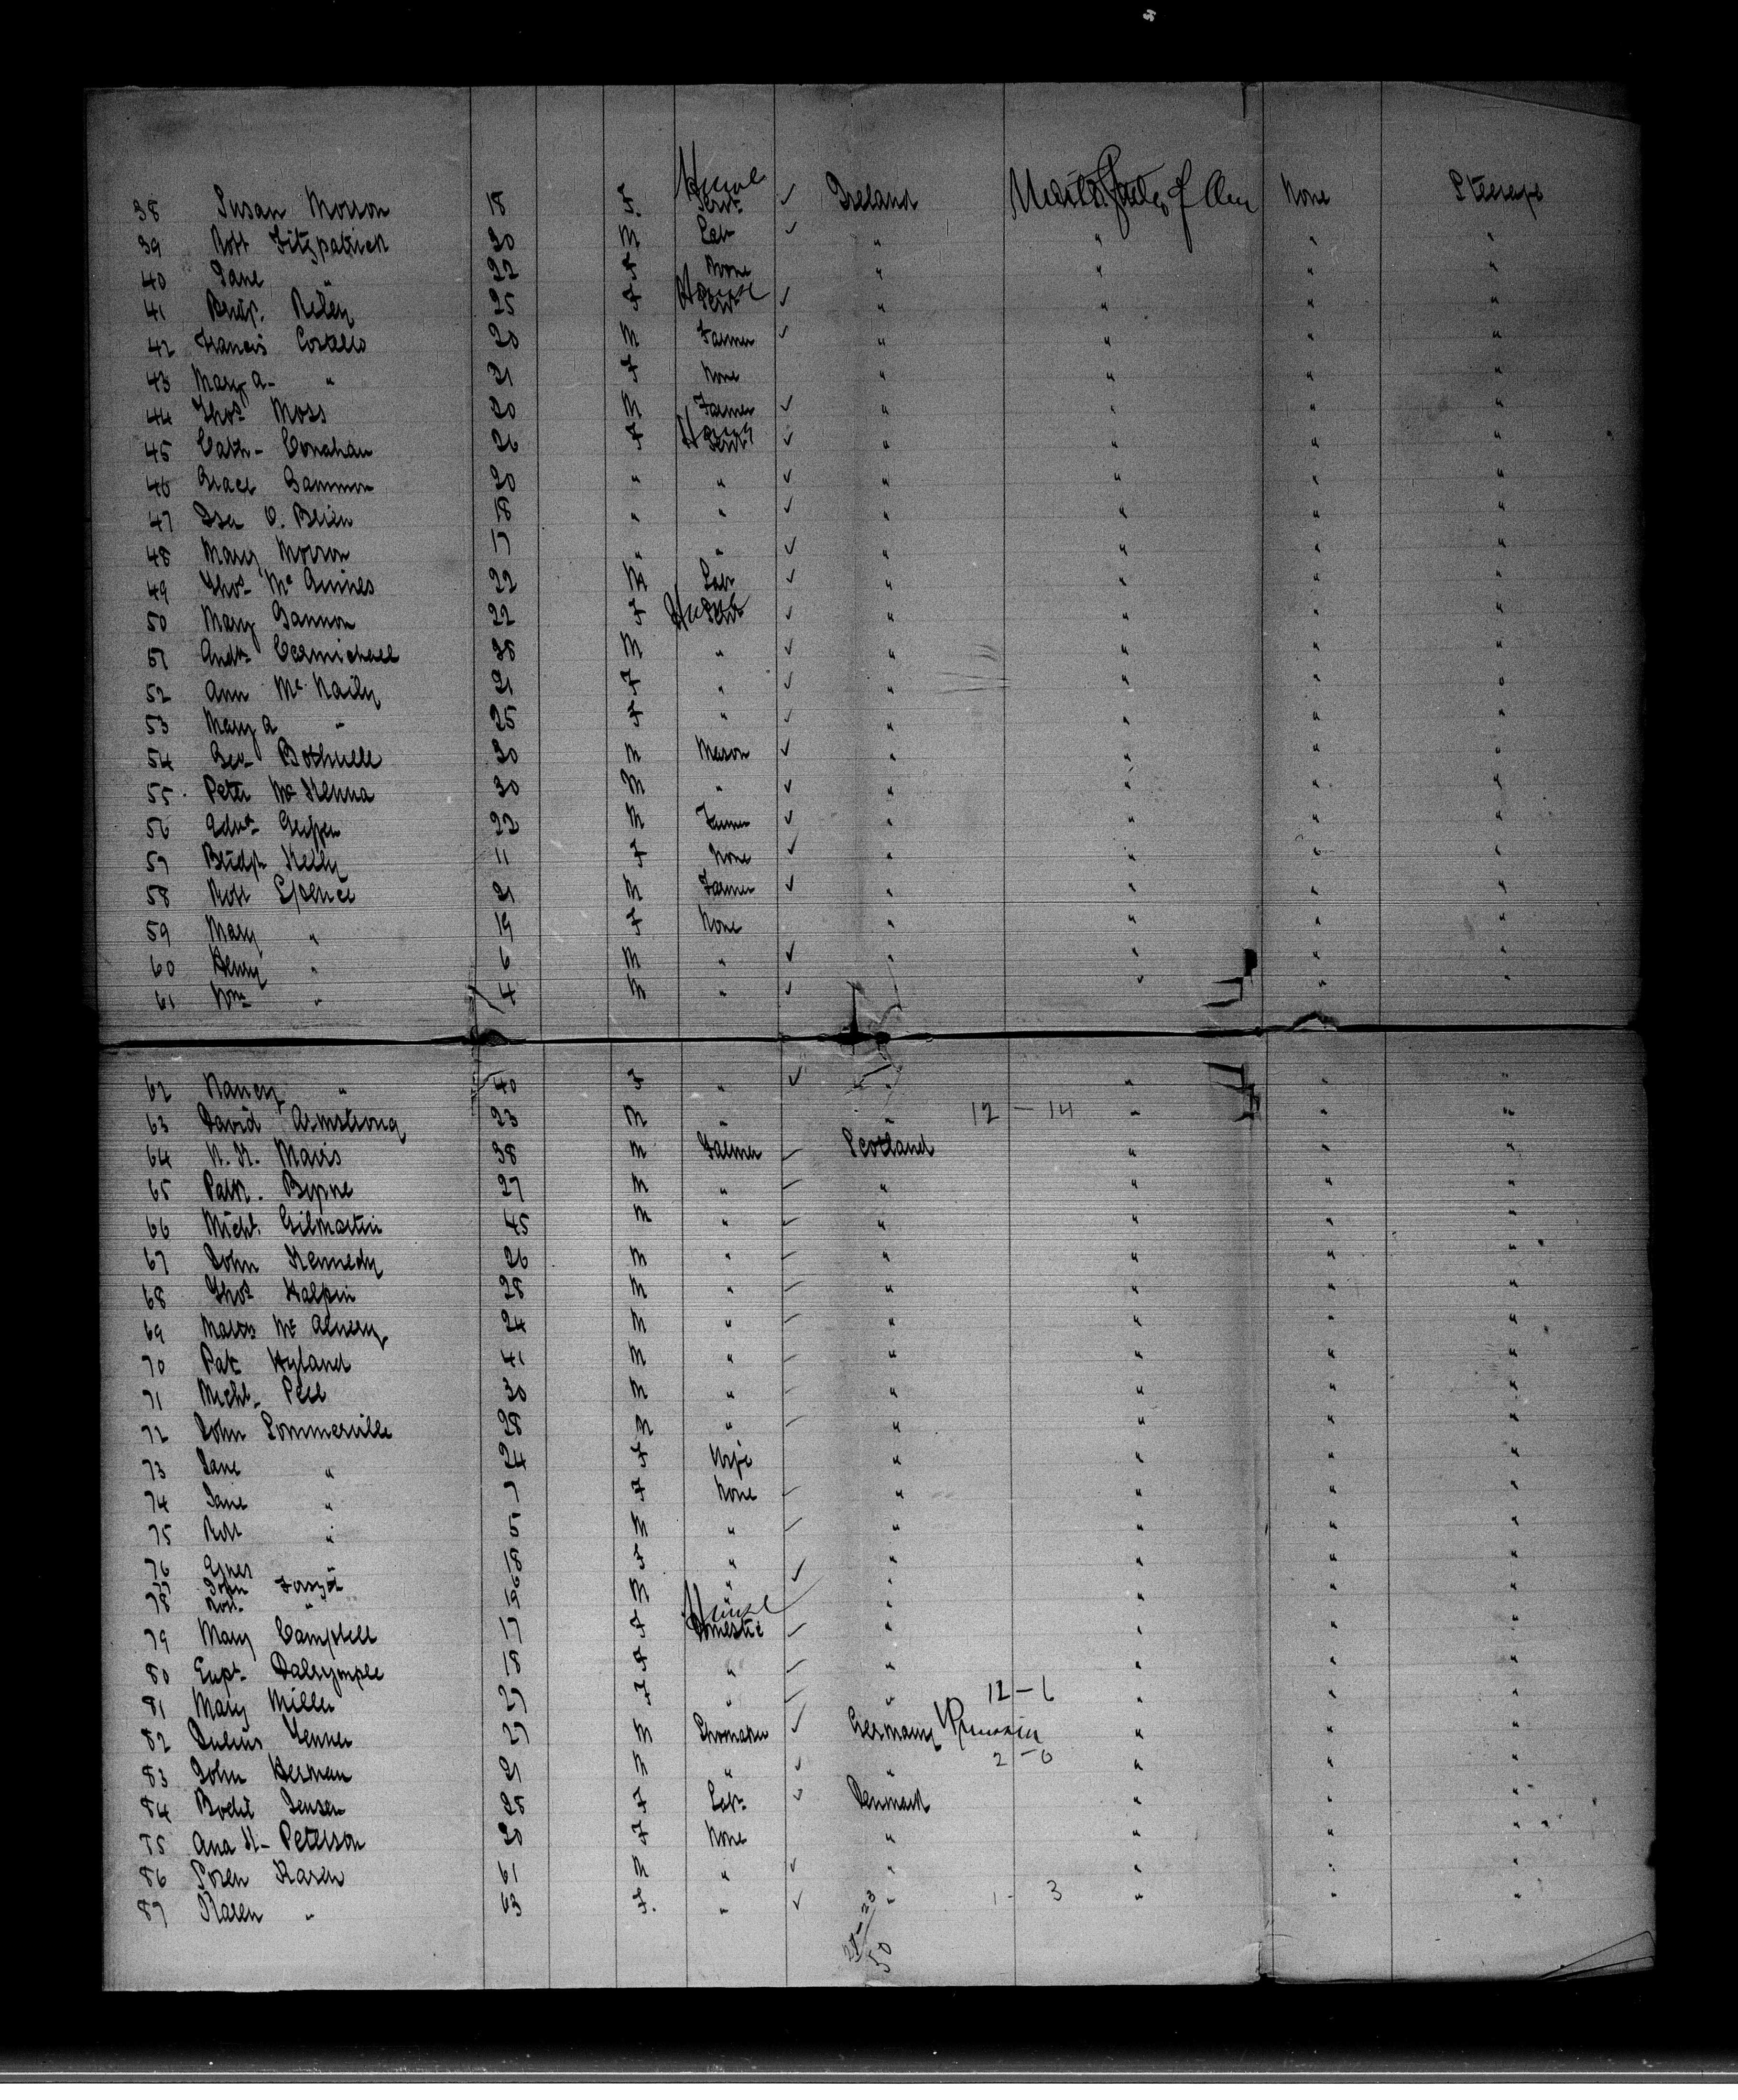 38 Susan Morron 18 F. House Servt ✓ Ireland United States of Am None Steerage
39 Robt Fitzpatrick 30 M Labr ✓ " " " "
40 Jane " 22 F None " " " "
41 Bridg. Riley 25 F House Servt ✓ " " " "
42 Francis Costello 20 M Farmer ✓ " " " "
43 Mary A- " 21 F None " " " "
44 Thos Moss 20 M Farmer ✓ " " " "
45 Cath- Conahan 26 F House Servt ✓ " " " "
46 Grace Gammon 20 " " ✓ " " " "
47 Isa O. Brien 18 " " ✓ " " " "
48 Mary Morron 17 " " ✓ " " " "
49 Thos Mc 22 M Labr ✓ " " " "
50 Mary Gannon 22 F House Servt ✓ " " " "
51 Andw Carmichael 38 M " ✓ " " " "
52 Ann Mc Naily 21 F " ✓ " " " "
53 Mary A " 25 F " ✓ " " " "
54 Geo- Bothwell 30 M Mason ✓ " " " "
55 Peter Mc Kenna 30 M " ✓ " " " "
56 22 M Farmer ✓ " " " "
57 Bridgt Kelly 11 F None ✓ " " " "
58 Robt Spence 21 M Farmer ✓ " " " "
59 Mary " 19 F None " " " "
60 Henry " 6 M " ✓ " " " "
61 Wm " 4 M " ✓ " " " "
62 Nancy " 40 F " ✓ " " " "
63 David Armstrong 23 M " " 12 - 14 " " "
64 38 M Farmer Scotland " " "
65 Patk. Byrne 27 M " " " " "
66 Michl. Gilmartin 45 M " " " " "
67 John Kennedy 26 M " " " " "
68 Thos Halpin 28 M " " " " "
69 Mc 24 M " " " " "
70 Pat Hyland 41 M " " " " "
71 Michl. Peel 30 M " " " " "
72 John Sommerville 28 M " " " " "
73 Jane " 24 F Wife " " " "
74 Jane " 7 F None " " " "
75 Robt " 5 M " " " " "
76 Agnes " 18 F " " " " "
77 John Forsyth " ✓
78 Robt " M " " " " "
79 Mary Campbell 17 F House Domestic " " " "
80 Eupt- Dalrymple 18 F " " " " "
81 Mary Miller 27 F " " 12 - 6 " " "
82 Julius 27 M Shomaker ✓ Germany Prussia " " "
83 John Herman 21 M " ✓ " 2 - 0 " " "
84 Bodil Jensen 28 F Labr ✓ Denmark " " "
85 Ana K- Peterson 20 F None " " " "
86 Soren Karen 61 M " ✓ " " " "
87 Karen " 63 F. " ✓ " 1 - 3 " " "
27-23
50